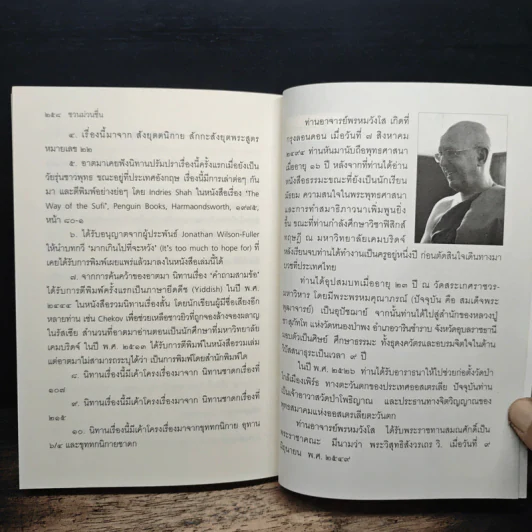 ๒๕๔ ชวนม่วนชื่น
๔. เรื่องนี้มาจาก สังยุตตนิกาย สักกะสังยุตพระสูตร
หมายเลข ๒๒
๕. อาตมาเคยฟังนิทานปรัมปราเรื่องนี้ครั้งแรกเมื่อยังเป็น
วัยรุ่นชาวพุทธ ขณะอยู่ที่ประเทศอังกฤษ เรื่องนี้มีการเล่าต่อๆ กัน
มา และตีพิมพ์อย่างย่อๆ โดย Indries Shah ในหนังสือเรื่อง "The
Way of the Sufi", Penguin Books, Harmaondsworth, ๑๙๗๕,
หน้า ๘๐-๑
๖. ได้รับอนุญาตจากผู้ประพันธ์ Jonathan Wilson-Fuller
ให้นำบทกวี "มากเกินไปที่จะหวัง" (It's too much to hope for) ที่
เคยได้รับการพิมพ์เผยแพร่แล้วมาลงในหนังสือเล่มนี้ได้
๗. จากการค้นคว้าของอาตมา นิทานเรื่อง "คำถามสามข้อ"
ได้รับการตีพิมพ์ครั้งแรกเป็นภาษายิดดิช (Yiddish) ในปี พ.ศ.
๒๔๔๔ ในหนังสือรวมนิทานเรื่องสั้น โดยนักเขียนผู้มีชื่อเสียงอีก
หลายท่าน เช่น Chekov เพื่อช่วยเหลือชาวยิวที่ถูกจองล้างจองผลาญ
ในรัสเซีย สำนวนที่อาตมาอ่านตอนเป็นนักศึกษาที่มหาวิทยาลัย
เคมบริดจ์ ในปี พ.ศ. ๒๕๑๓ ได้รับการตีพิมพ์ในหนังสือรวมเล่ม
แต่อาตมาไม่สามารถระบุได้ว่า เป็นการพิมพ์โดยสำนักพิมพ์ใด
๘. นิทานเรื่องนี้มีเค้าโครงเรื่องมาจาก นิทานชาดกเรื่องที่
๑๐๗
๙. นิทานเรื่องนี้มีเค้าโครงเรื่องมาจาก นิทานชาดกเรื่องที่
๒๑๕
๑๐. นิทานเรื่องนี้มีเค้าโครงเรื่องมาจากขุททกนิกาย อุทาน
๖/๔ และขุททกนิกายชาดก
ท่านอาจารย์พรหมวังโส เกิดที่
กรุงลอนดอน เมื่อวันที่ ๗ สิงหาคม
๒๔๙๔ ท่านหันมานับถือพุทธศาสนา
เมื่ออายุ ๑๖ ปี หลังจากที่ท่านได้อ่าน
หนังสือธรรมะขณะที่ยังเป็นนักเรียน
มัธยม ความสนใจในพระพุทธศาสนา
และการทำสมาธิภาวนาเพิ่มพูนยิ่ง
ขึ้น ขณะที่ท่านกำลังศึกษาวิชาฟิสิกส์
ทฤษฎี ณ มหาวิทยาลัยเคมบริดจ์
หลังเรียนจบท่านได้ทำงานเป็นครูอยู่หนึ่งปี ก่อนตัดสินใจเดินทางมา
บวชที่ประเทศไทย
ท่านได้อุปสมบทเมื่ออายุ ๒๓ ปี ณ วัดสระเกศราชวร-
มหาวิหาร โดยมีพระพรหมคุณาภรณ์ (ปัจจุบัน คือ สมเด็จพระ
พุฒาจารย์) เป็นอุปัชฌาย์ จากนั้นท่านได้ไปสู่สำนักของหลวงปู่
ชา สุภัทโท แห่งวัดหนองป่าพง อำเภอวารินชำราบ จังหวัดอุบลราชธานี
มอบตัวเป็นศิษย์ ศึกษาธรรมะ ทั้งธุดงควัตรและอบรมจิตใจในด้าน
วิปัสสนาธุระเป็นเวลา ๙ ปี
ในปี พ.ศ. ๒๕๒๖ ท่านได้รับอาราธนาให้ไปช่วยก่อตั้งวัดป่า
ใกล้เมืองเพิร์ธ ทางตะวันตกของประเทศออสเตรเลีย ปัจจุบันท่าน
เป็นเจ้าอาวาสวัดป่าโพธิญาณ และประธานทางจิตวิญญาณของ
พุทธสมาคมแห่งออสเตรเลียตะวันตก
ท่านอาจารย์พรหมวังโส ได้รับพระราชทานสมณศักดิ์เป็น
พระราชาคณะ มีนามว่า พระวิสุทธิสังวรเถร วิ. เมื่อวันที่ ๙
มิถุนายน พ.ศ. ๒๕๔๙